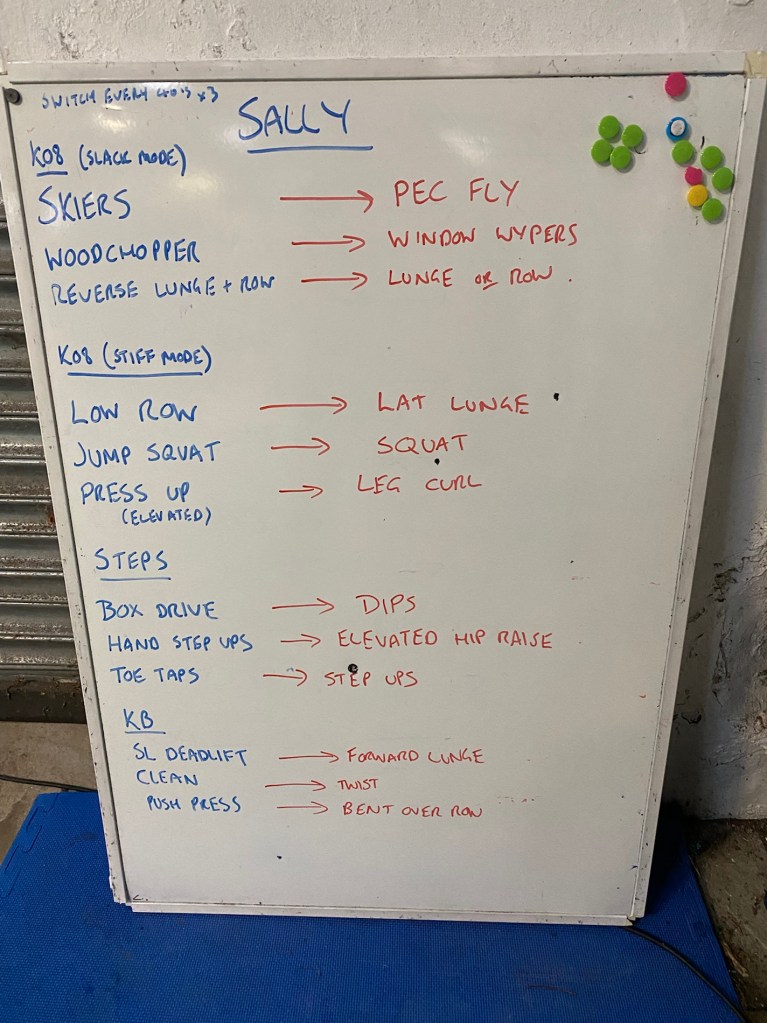 SWITCH EVERY 40's x3
SALLY
KO8 (SLACK MODE)
SKIERS → PEC FLY
WOODCHOPPER → WINDOW WYPERS
REVERSE LUNGE + ROW → LUNGE OR ROW.
KO8 (STIFF MODE)
LOW ROW → LAT LUNGE
JUMP SQUAT → SQUAT
PRESS UP → LEG CURL
(ELEVATED)
STEPS
BOX DRIVE → DIPS
HAND STEP UPS → ELEVATED HIP RAISE
TOE TAPS → STEP UPS
KB
SL DEADLIFT → FORWARD LUNGE
CLEAN → TWIST
PUSH PRESS → BENT OVER ROW